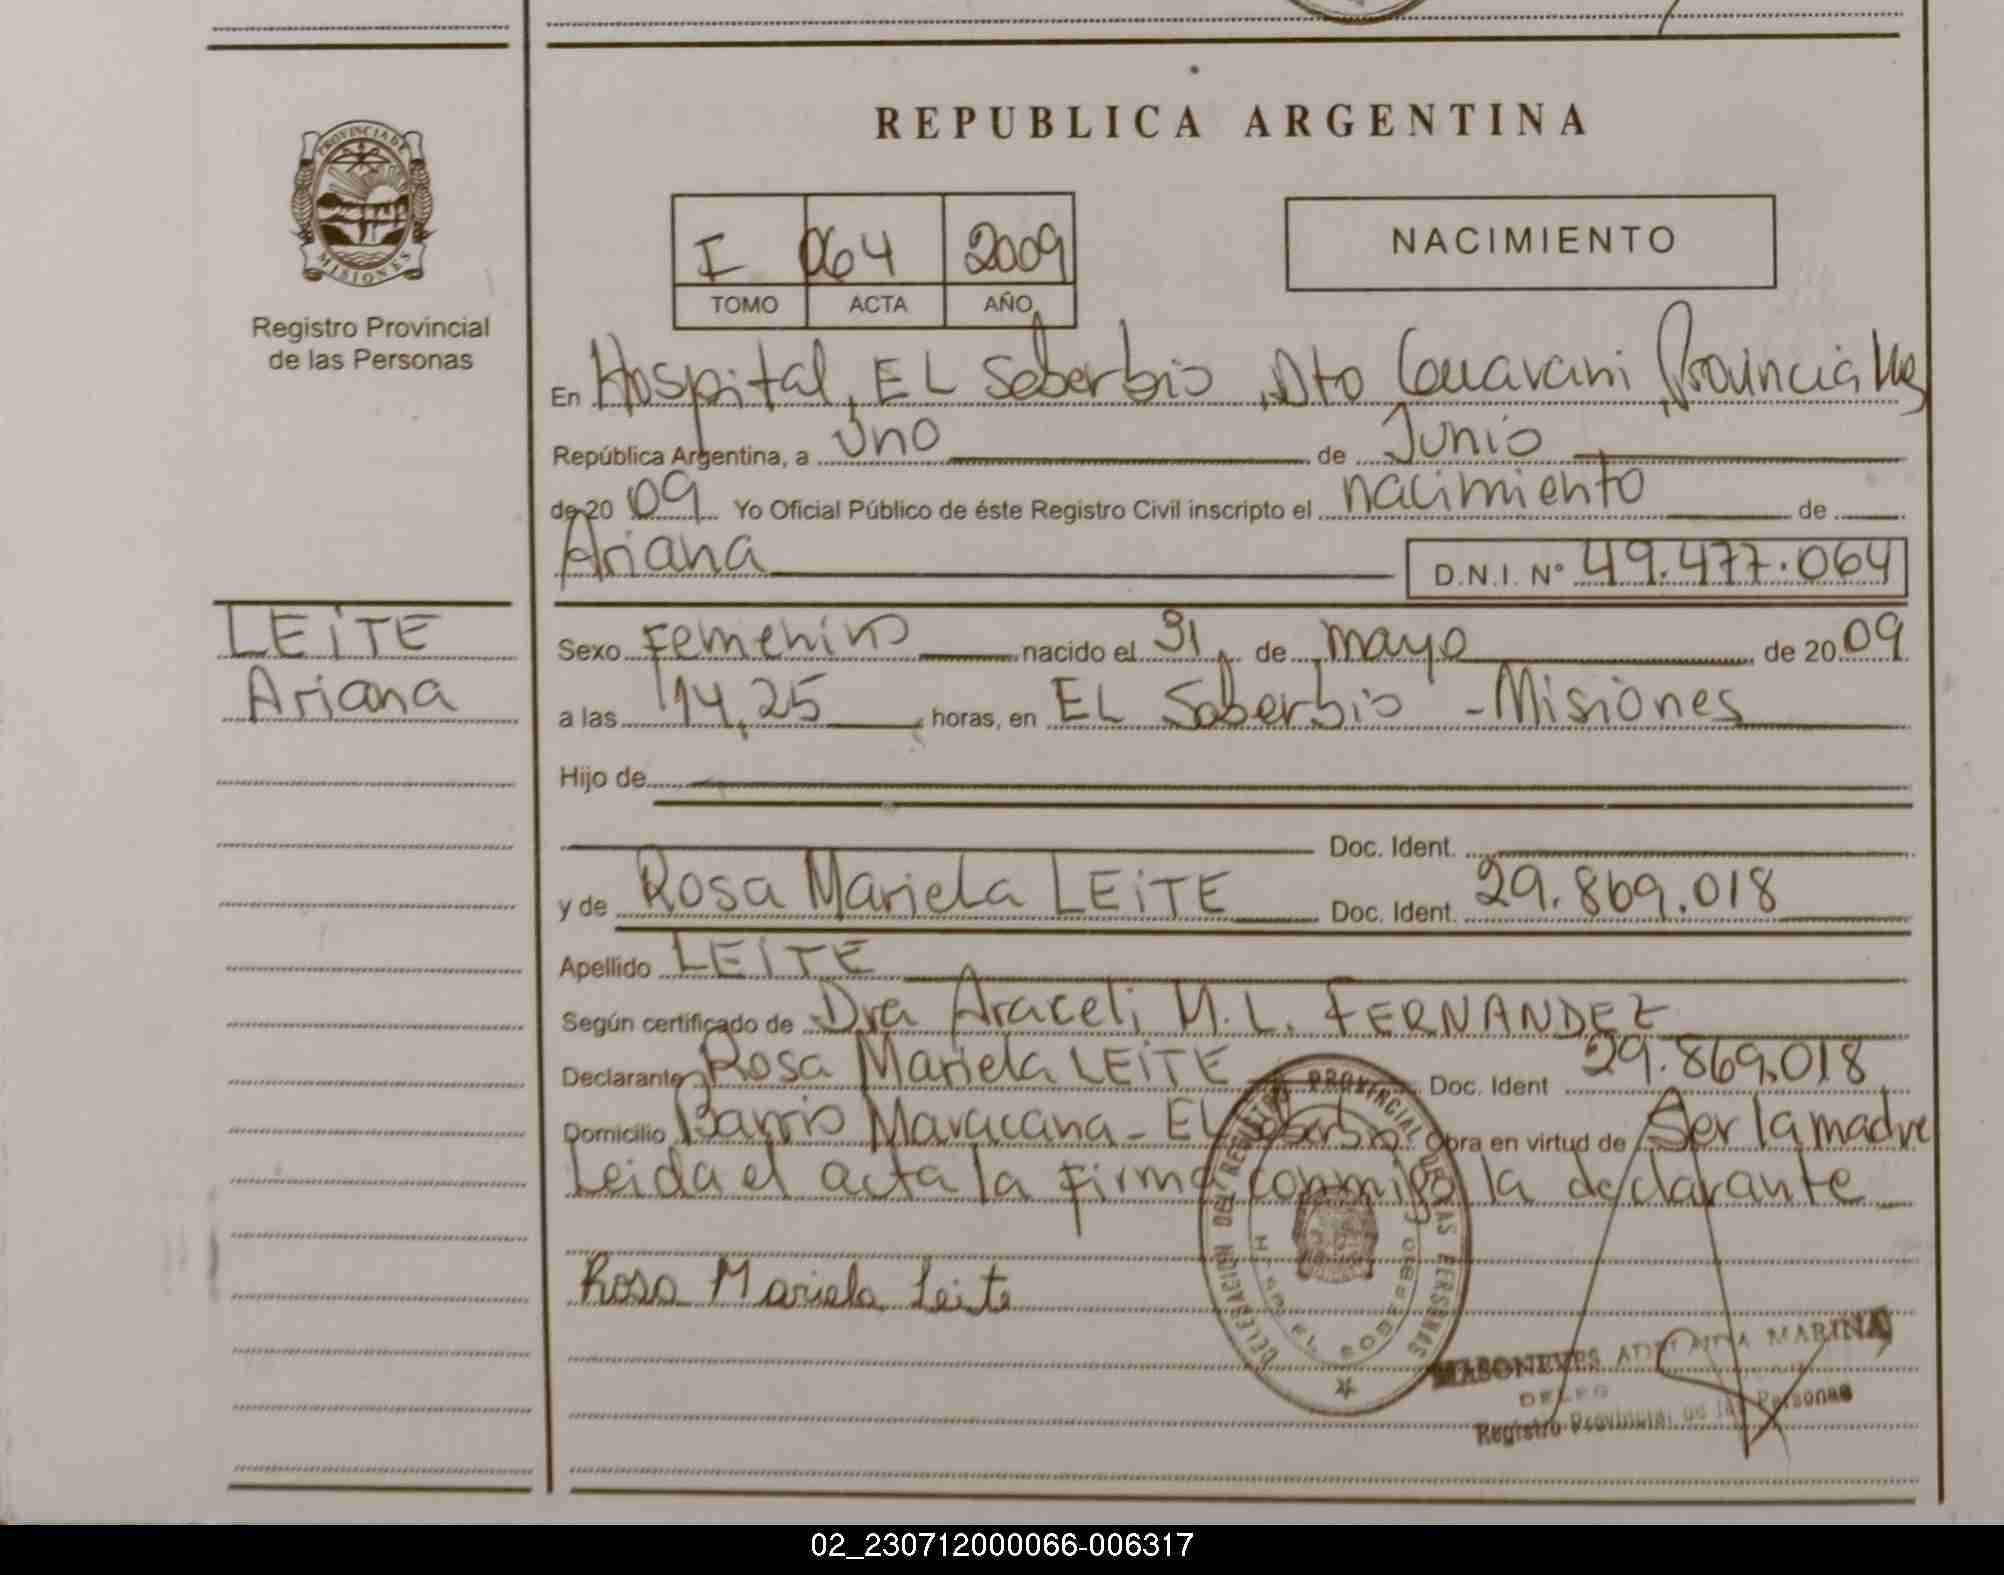 REPUBLICA ARGENTINA
PROVINCIA DE
MISIONES
Registro Provincial
de las Personas
I 064 2009
TOMO ACTA AÑO
NACIMIENTO
En Hospital, EL Soberbio, Dto Guarani, Provincia
República Argentina, a Uno de Junio
de 20 09 Yo Oficial Público de éste Registro Civil inscripto el nacimiento de
Ariana D.N.I. Nº 49.477.064
LEiTE
Ariana
Sexo Femenino nacido el 31 de mayo de 20 09
a las 14,25 horas, en EL Soberbio - Misiones
Hijo de
Doc. Ident.
y de Rosa Mariela LEiTE Doc. Ident. 29.869.018
Apellido LEiTE
Según certificado de Dra Araceli M. L. FERNANDEZ
Declarante Rosa Mariela LEiTE Doc. Ident 29.869.018
Domicilio Barrio Maracana - EL Soberbio Obra en virtud de Ser la madre
Leida el acta la firma conmigo la declarante
Rosa Mariela Leite
DELEGACION DEL REGISTRO PROVINCIAL DE LAS PERSONAS
EL SOBERBIO
MARINA
DELEG
Registro Provincial de las Personas
02_230712000066-006317